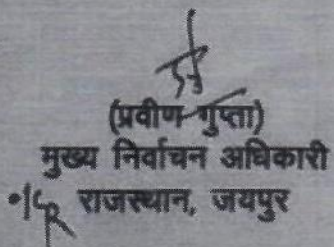 (प्रवीण गुप्ता)
मुख्य निर्वाचन अधिकारी
राजस्थान, जयपुर